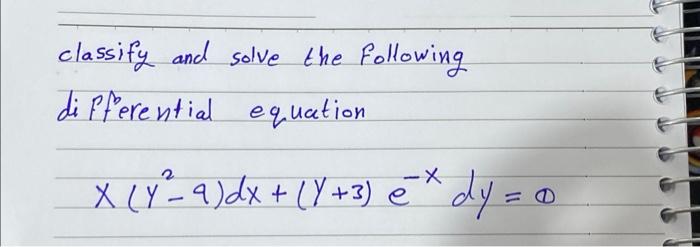 classify and solve the following
differential equation
X (Y² - 9) dx + (Y + 3) e⁻ˣ dy = 0